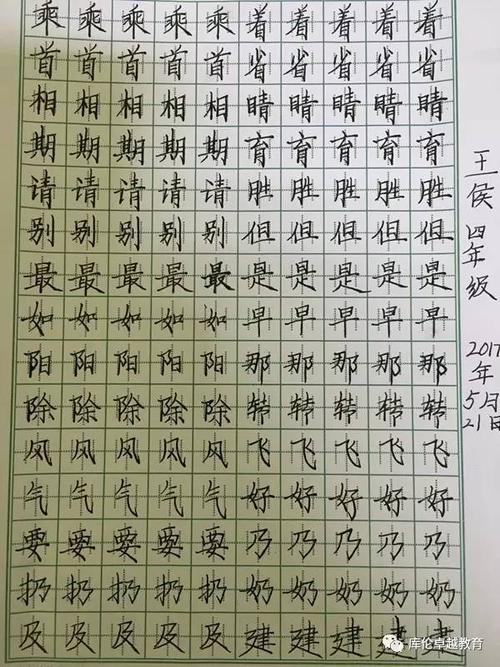 乘乘乘乘乘着着着着着
首首首首首省省省省省
相相相相相睛睛睛睛睛
期期期期期育育育育育
请请请请请胜胜胜胜胜
别别别别别但但但但但
最最最最最是是是是是
如如如如如早早早早早
阳阳阳阳阳那那那那那
除除除除除转转转转转
风风风风风飞飞飞飞飞
气气气气气好好好好好
要要要要要乃乃乃乃乃
扔扔扔扔扔奶奶奶奶奶
及及及及及建建建建建
王侯 四年级
2017年5月21日
库伦卓越教育